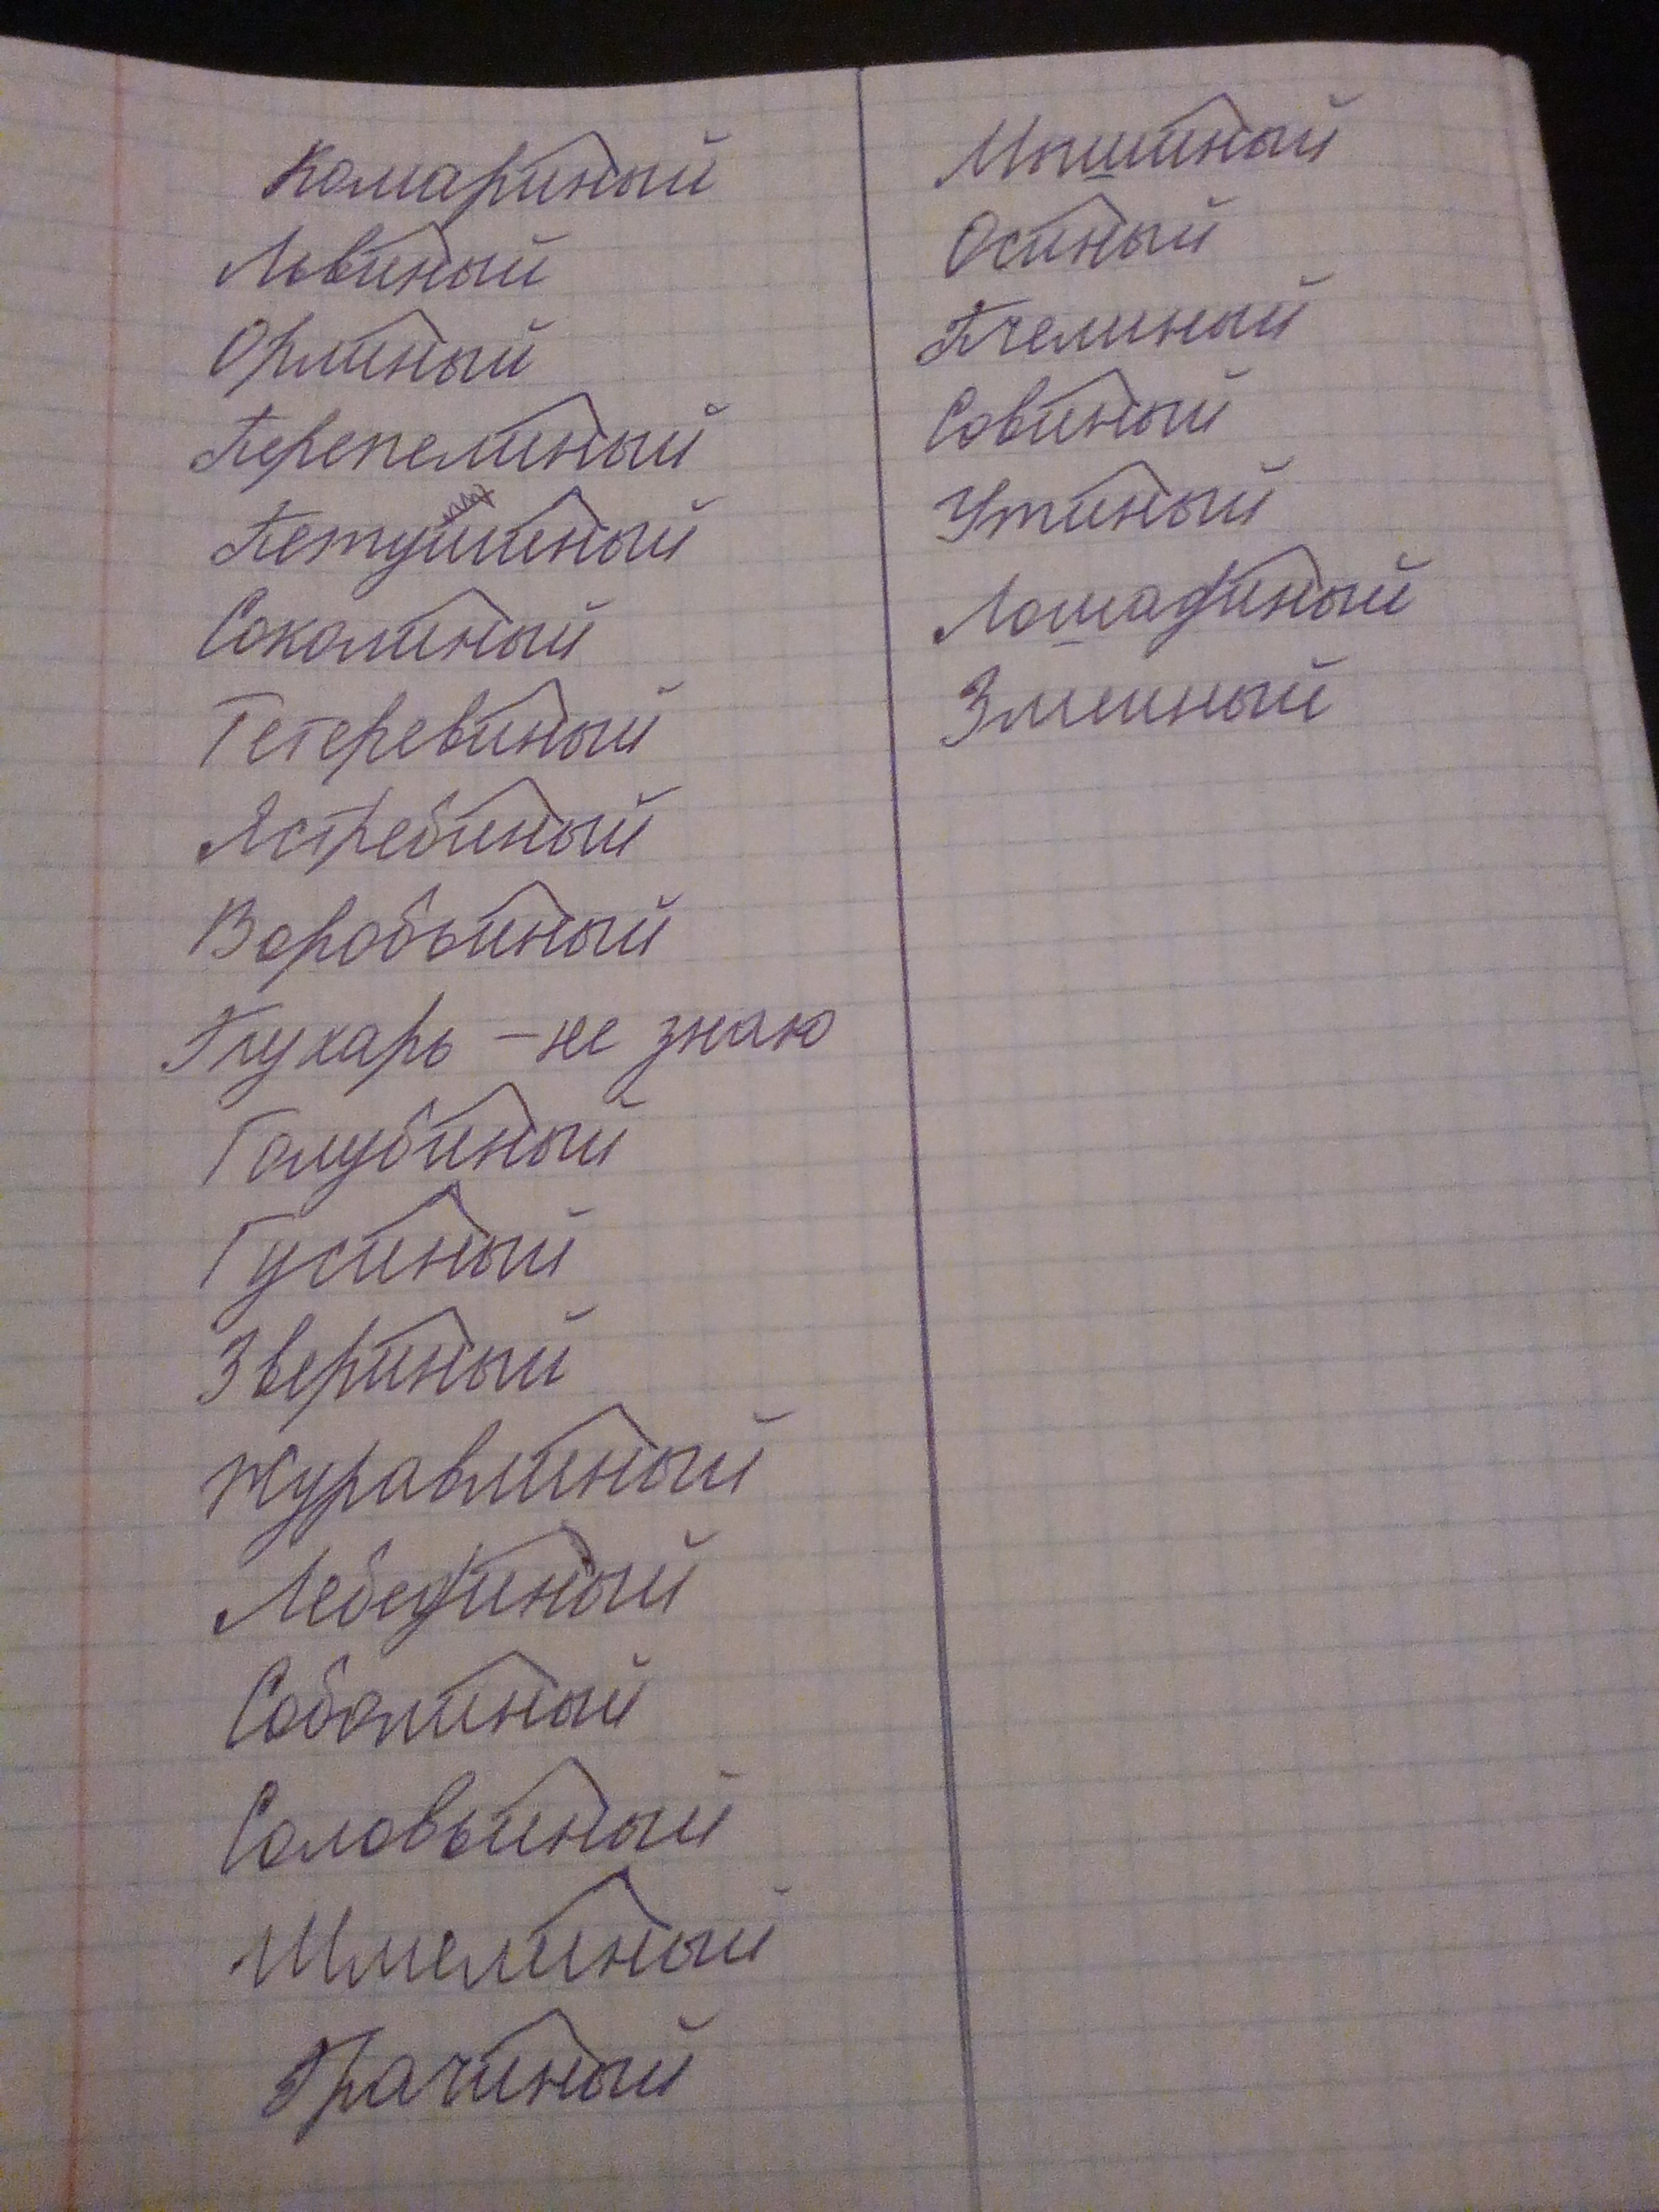 Комариный
Львиный
Орлиный
Перепелиный
Петушиный
Соколиный
Тетеревиный
Ястребиный
Воробьиный
Глухарь – не знаю
Голубиный
Гусиный
Звериный
Журавлиный
Лебединый
Соболиный
Соловьиный
Шмелиный
Грачиный
Мышиный
Осиный
Пчелиный
Совиный
Утиный
Лошадиный
Змеиный